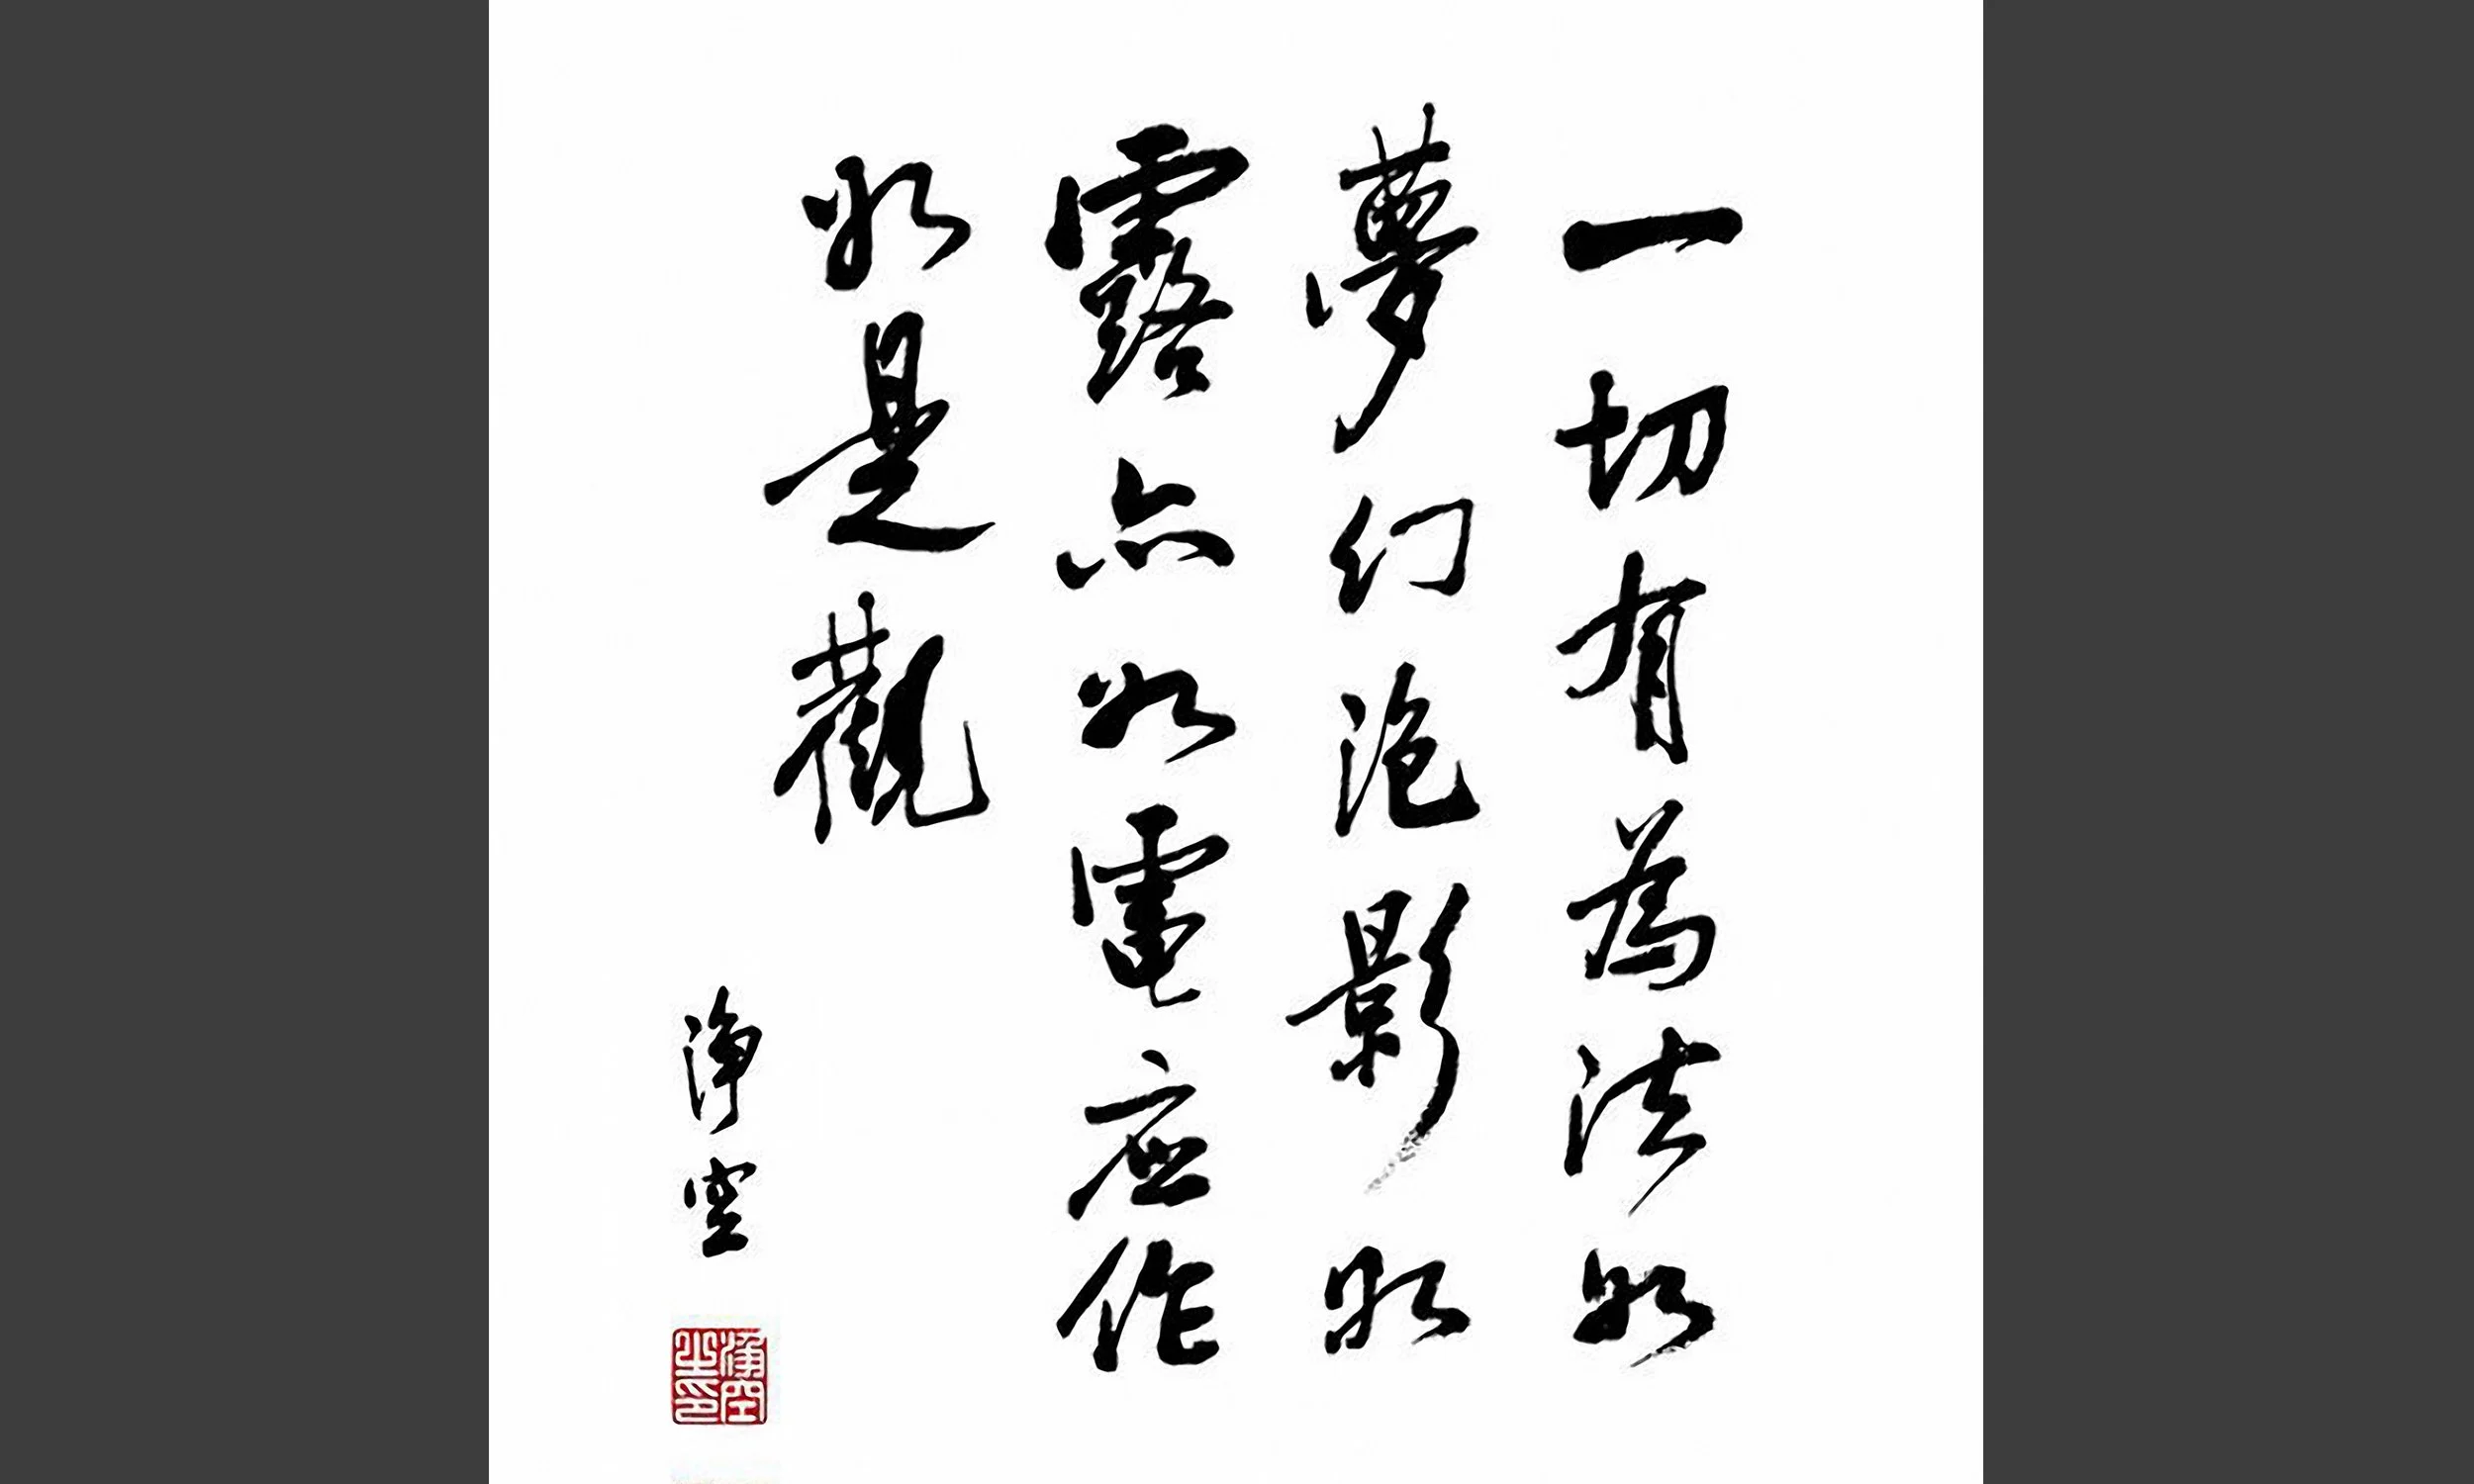 一切有為法如
夢幻泡影如
露亦如電应作
如是觀
淨空
淨空之印